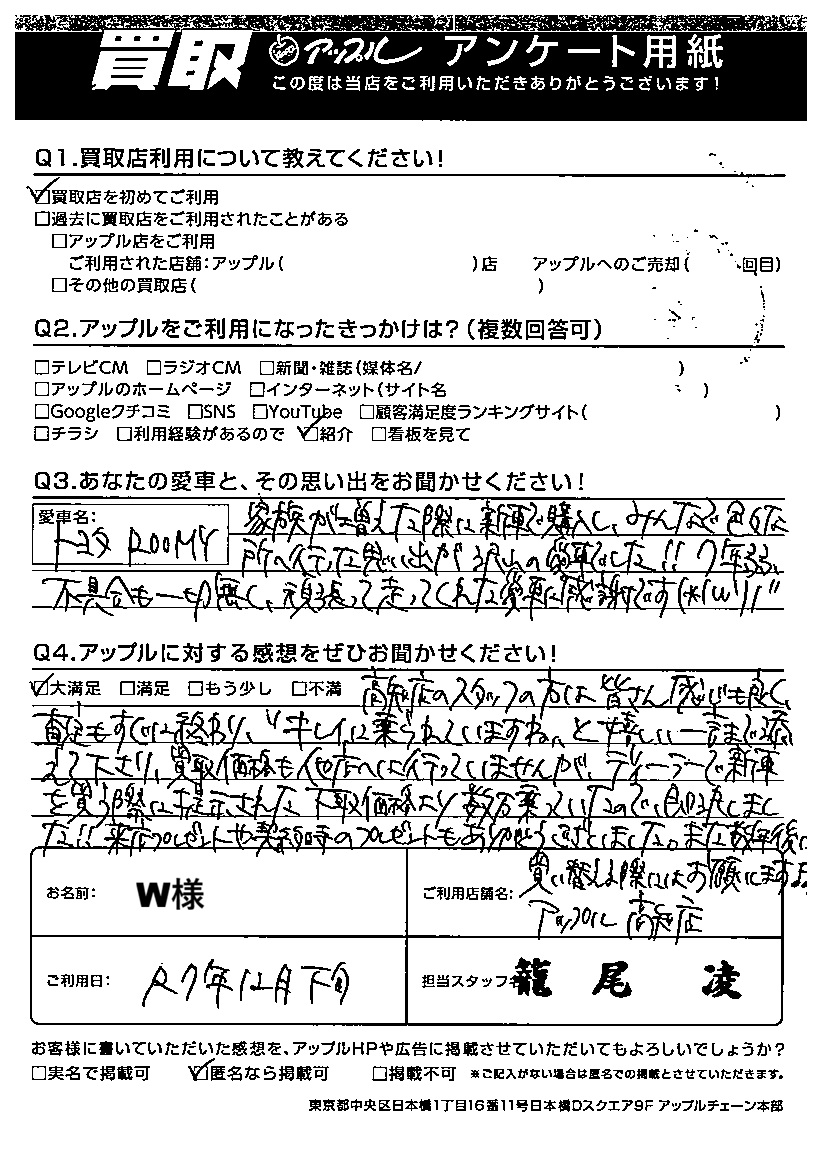 買取 アップル アンケート用紙
この度は当店をご利用いただきありがとうございます!
Q1.買取店利用について教えてください!
☑買取店を初めてご利用
□過去に買取店をご利用されたことがある
□アップル店をご利用
ご利用された店舗:アップル( )店 アップルへのご売却( 回目)
□その他の買取店( )
Q2.アップルをご利用になったきっかけは?(複数回答可)
□テレビCM □ラジオCM □新聞・雑誌(媒体名/ )
□アップルのホームページ □インターネット(サイト名 )
□Googleクチコミ □SNS □YouTube □顧客満足度ランキングサイト( )
□チラシ □利用経験があるので ☑紹介 □看板を見て
Q3.あなたの愛車と、その思い出をお聞かせください!
愛車名:
トヨタ ROOMY
家族が増えた際に新車で購入し、みんなで色々な
所へ行った思い出が沢山の愛車でした!! 7年間、
不具合も一切無く、頑張って走ってくれた愛車に感謝です(*'ω'*)!!
Q4.アップルに対する感想をぜひお聞かせください!
☑大満足 □満足 □もう少し □不満
高知店のスタッフの方は皆さん感じも良く、
査定もすぐに終わり、"キレイに乗られていますね。"と嬉しい一言まで添
えて下さり、買取価格も他店へは行っていませんが、ディーラーで新車
を買う際に提示された下取価格より数万乗っていたので、即決しまし
た!! 来店プレゼントや契約時のプレゼントもありがとうございました。また数年後に
買い替える際にはお願いします
お名前: W様
ご利用店舗名: アップル 高知店
ご利用日: R7年12月下旬
担当スタッフ名 籠尾 凌
お客様に書いていただいた感想を、アップルHPや広告に掲載させていただいてもよろしいでしょうか?
□実名で掲載可 ☑匿名なら掲載可 □掲載不可 ※ご記入がない場合は匿名での掲載とさせていただきます。
東京都中央区日本橋1丁目16番11号日本橋Dスクエア9F アップルチェーン本部